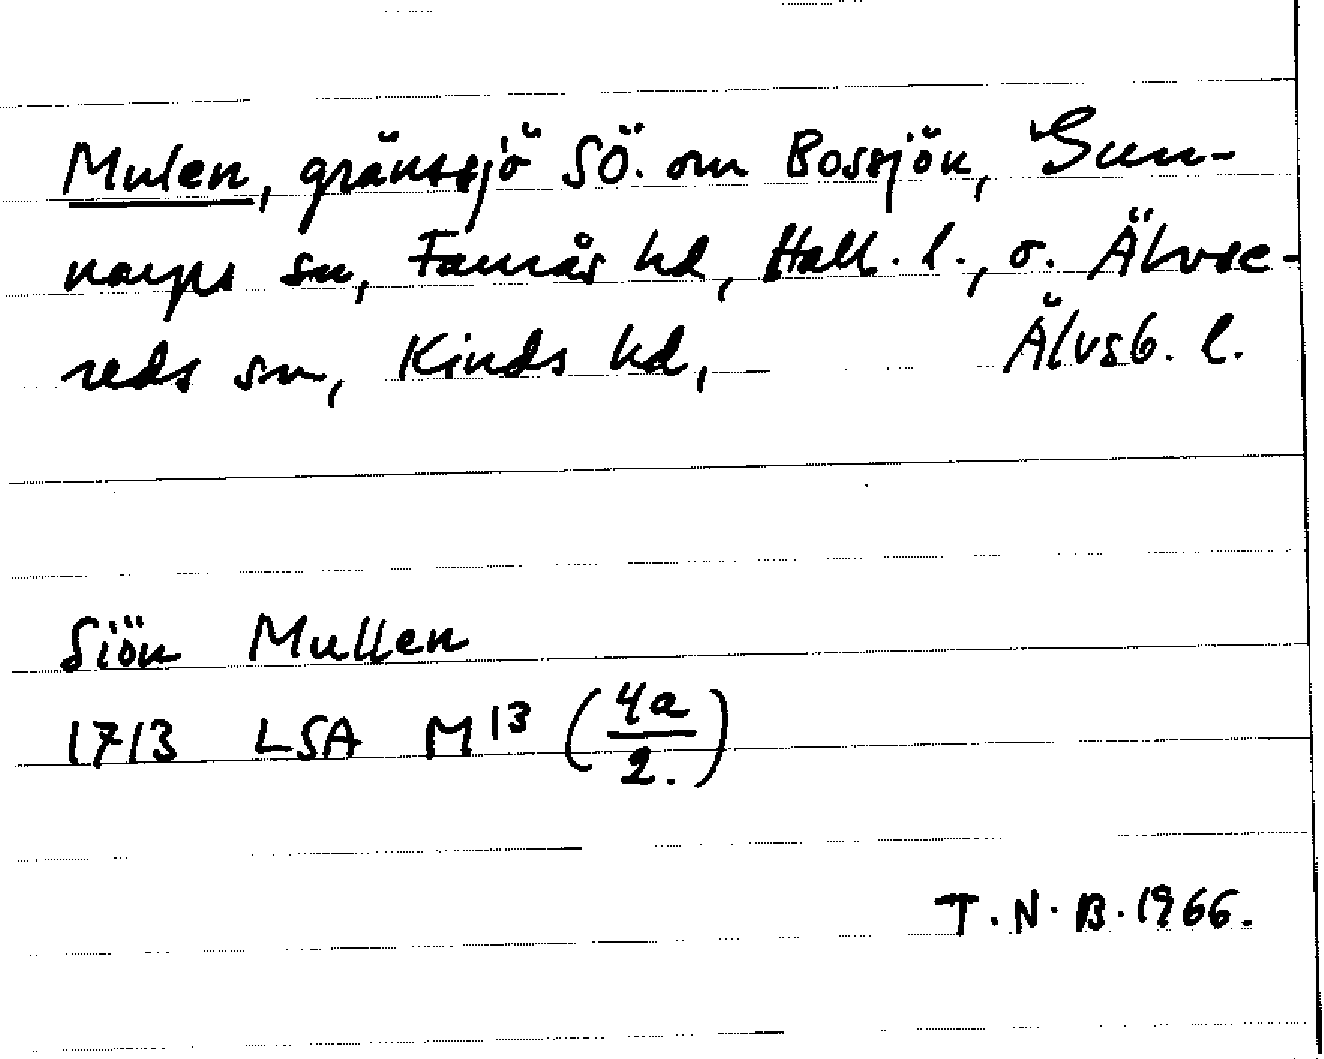 Mulen, gränssjö SÖ. om Bossjön, Gun-
narps sn, Faurås hd, Hall. l., o. Älvse-
reds sn, Kinds hd, Älvsb. l.
Siön Mullen
1713 LSA M 13 (4a/2.)
T.N.B. 1966.